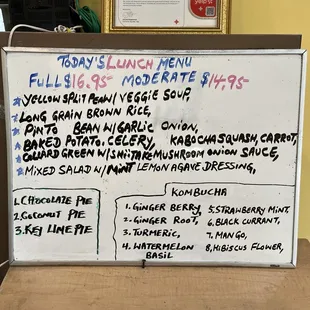 TODAY'S LUNCH MENU
FULL $16.95 MODERATE $14.95
YELLOW SPLIT PEA W/ VEGGIE SOUP,
LONG GRAIN BROWN RICE,
PINTO BEAN W/ GARLIC ONION,
BAKED POTATO, CELERY, KABOCHA SQUASH, CARROT,
COLLARD GREEN W/ SHIITAKE MUSHROOM ONION SAUCE,
MIXED SALAD W/ MINT LEMON AGAVE DRESSING,
1. CHOCOLATE PIE
2. COCONUT PIE
3. KEY LIME PIE
KOMBUCHA
1. GINGER BERRY,
2. GINGER ROOT,
3. TURMERIC,
4. WATERMELON
BASIL
5. STRAWBERRY MINT,
6. BLACK CURRANT,
7. MANGO,
8. HIBISCUS FLOWER,